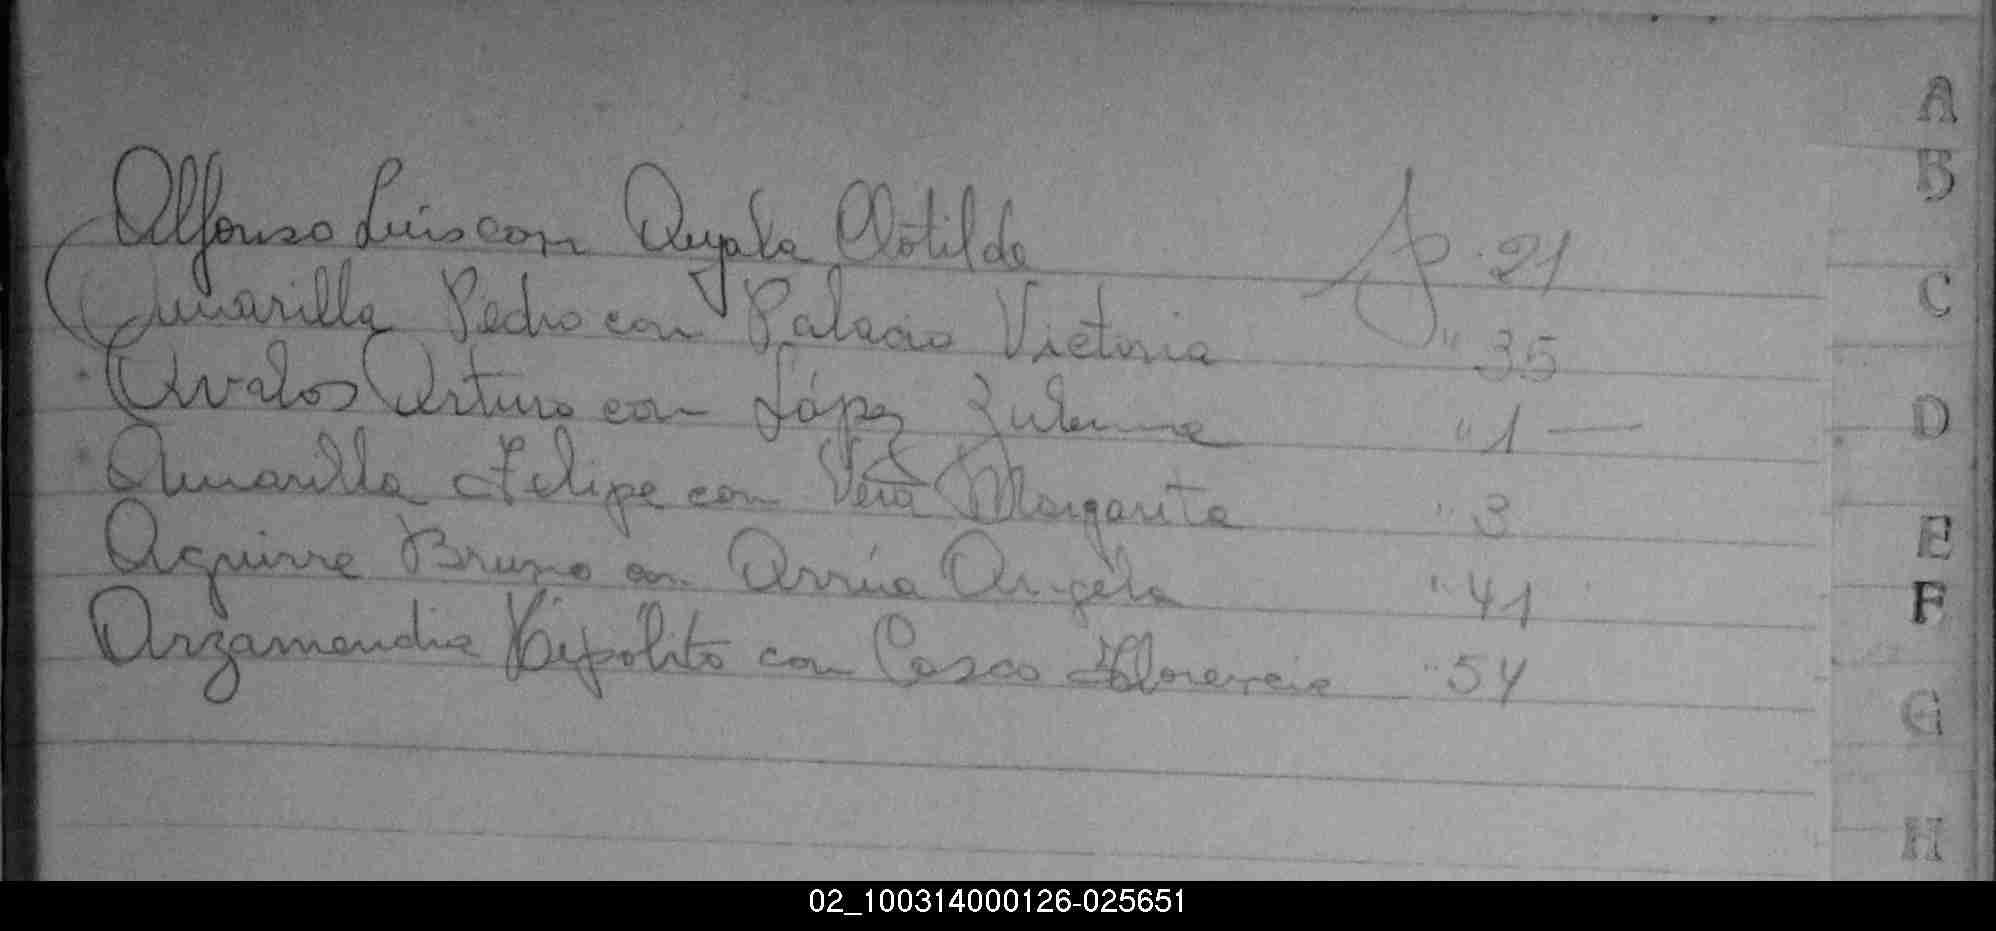 Alfonso Luis con Ayala Clotilde fp. 21
Amarilla Pedro con Palacio Victoria " 35
Avalos Arturo con López Zulema " 1 —
Amarilla Felipe con Vera Margarita " 3
Aguirre Bruno con Arrúa Angela " 41
Arzamendia Hipólito con Casco Florencia " 54
A
B
C
D
E
F
G
H
02_100314000126-025651